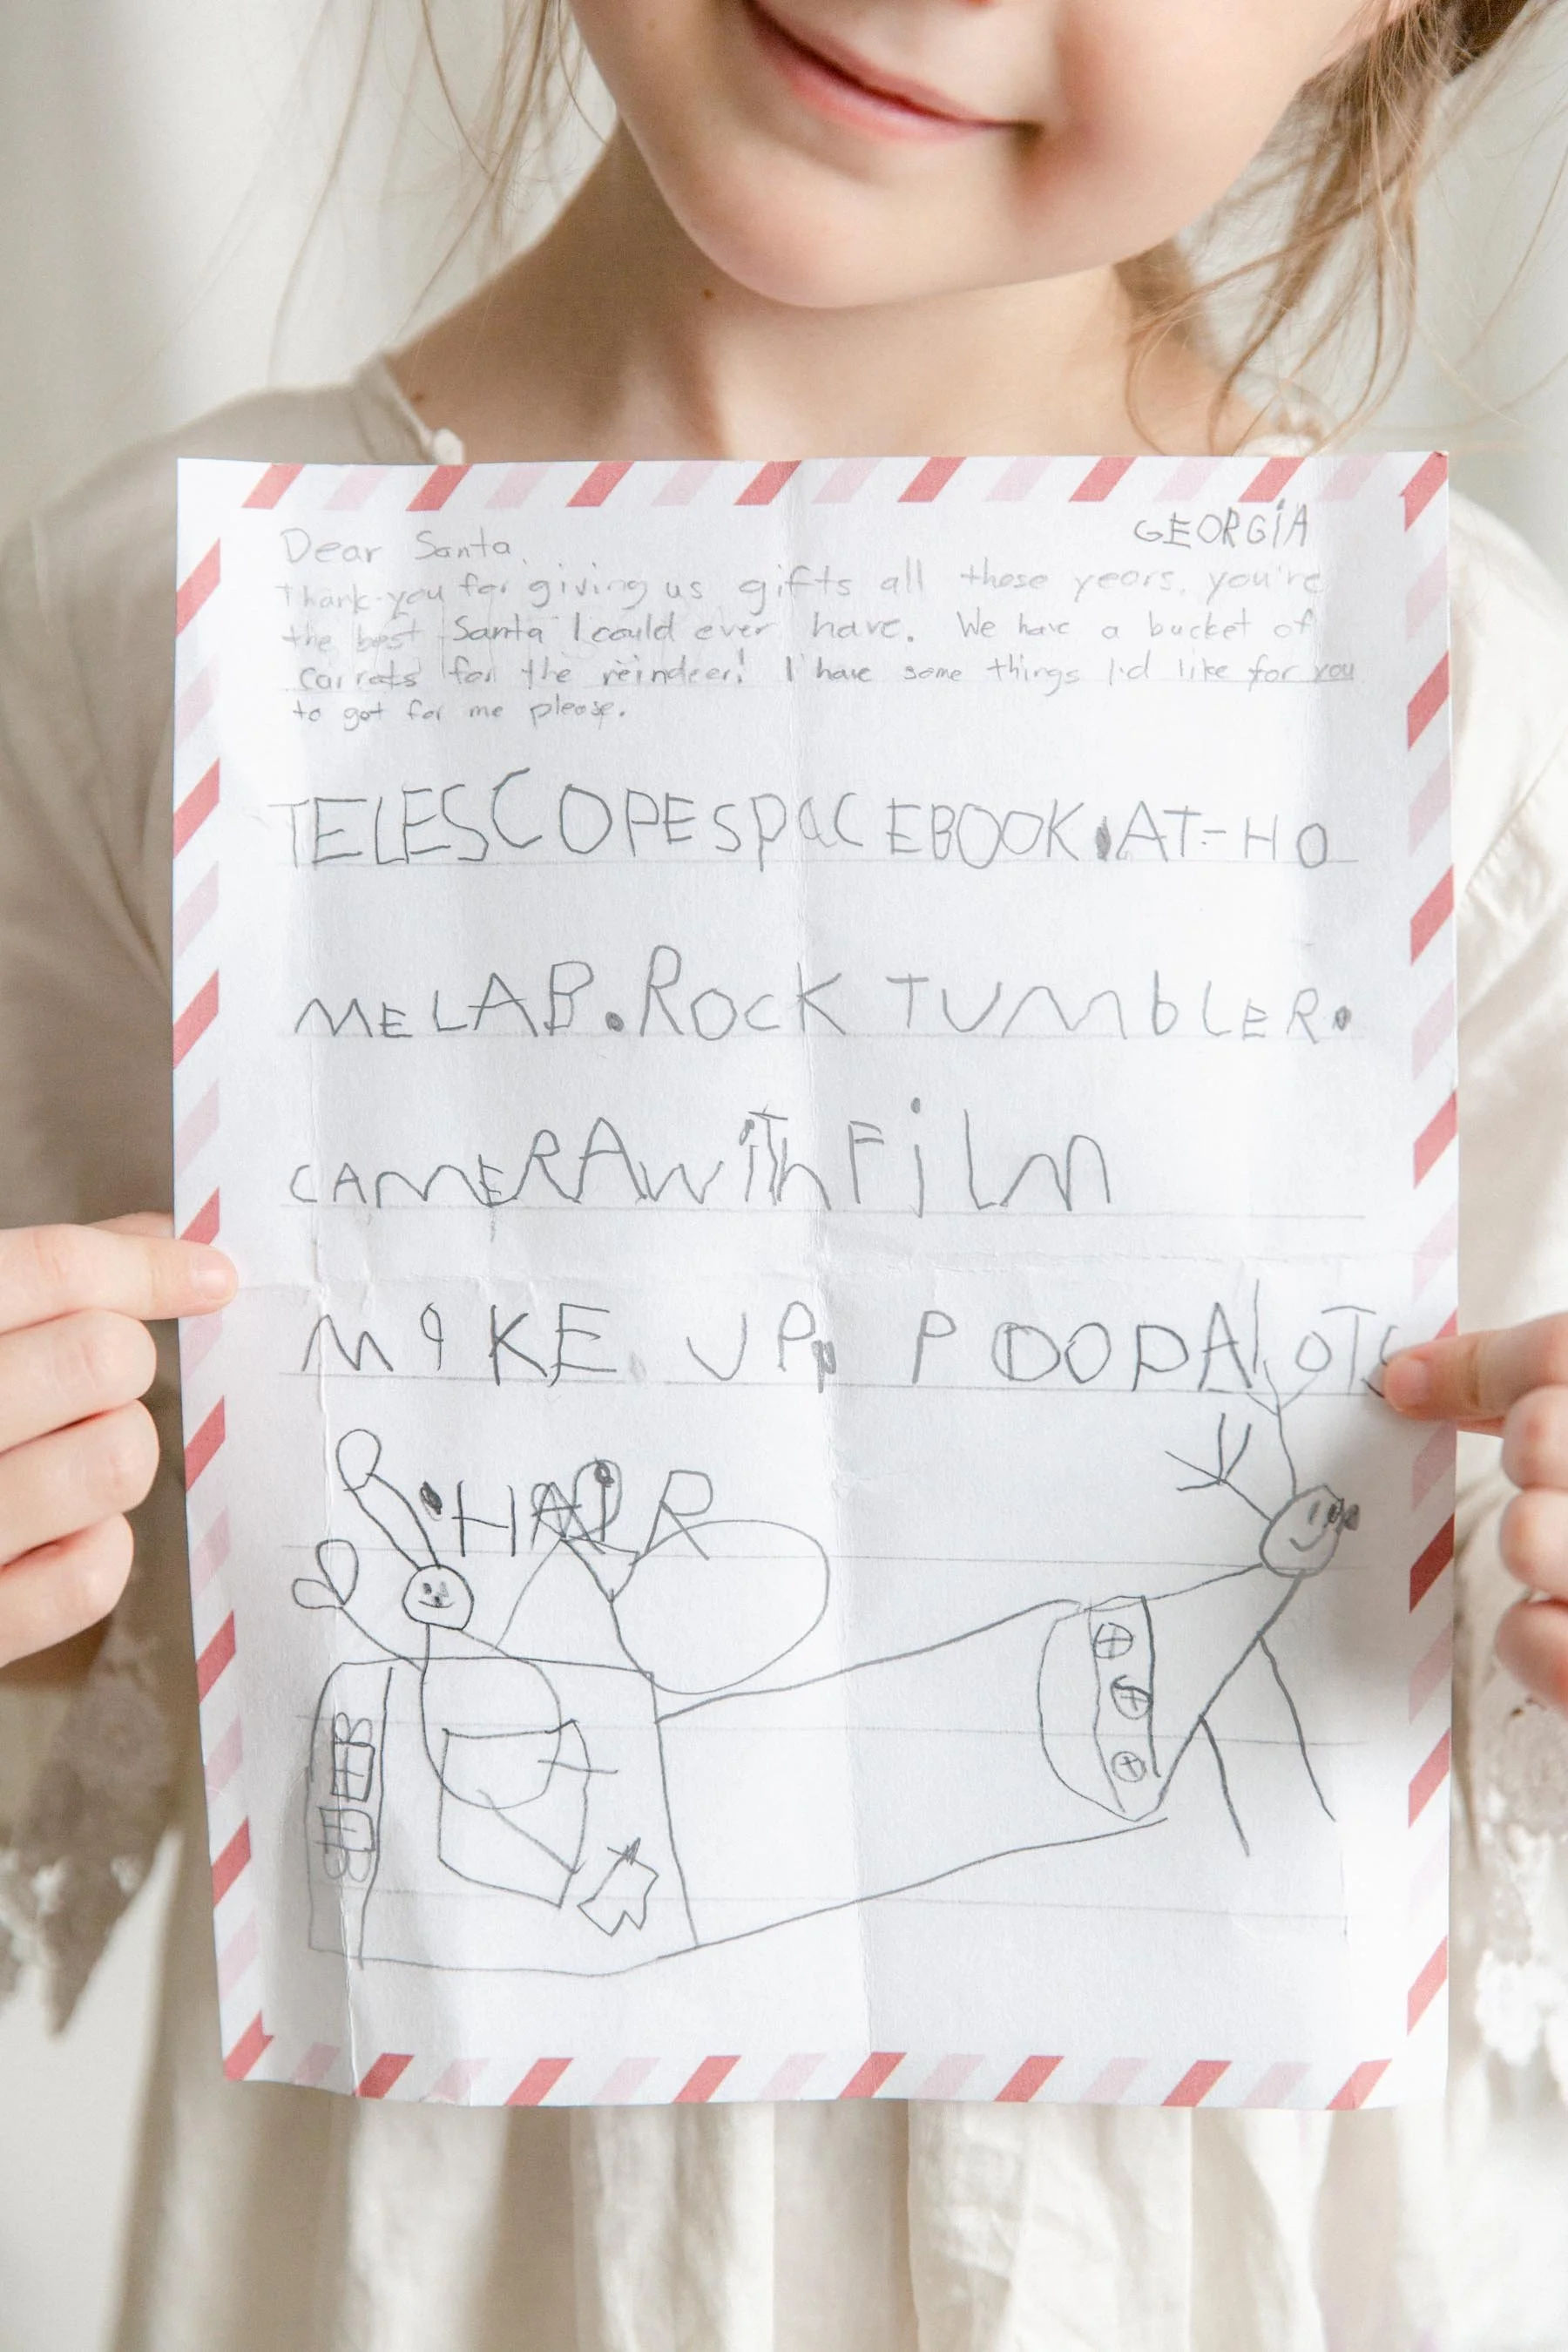 GEORGiA
Dear Santa,
Thank-you for giving us gifts all these years, you're
the best Santa I could ever have. We have a bucket of
carrots for the reindeer! I have some things I'd like for you
to get for me please.
TELESCOPESPaCEBOOK.AT-HO
MELAB.ROCK TUMbLER.
CAMERAwiThFiLm
MaKE UP. POOPALOTS
.HAiR